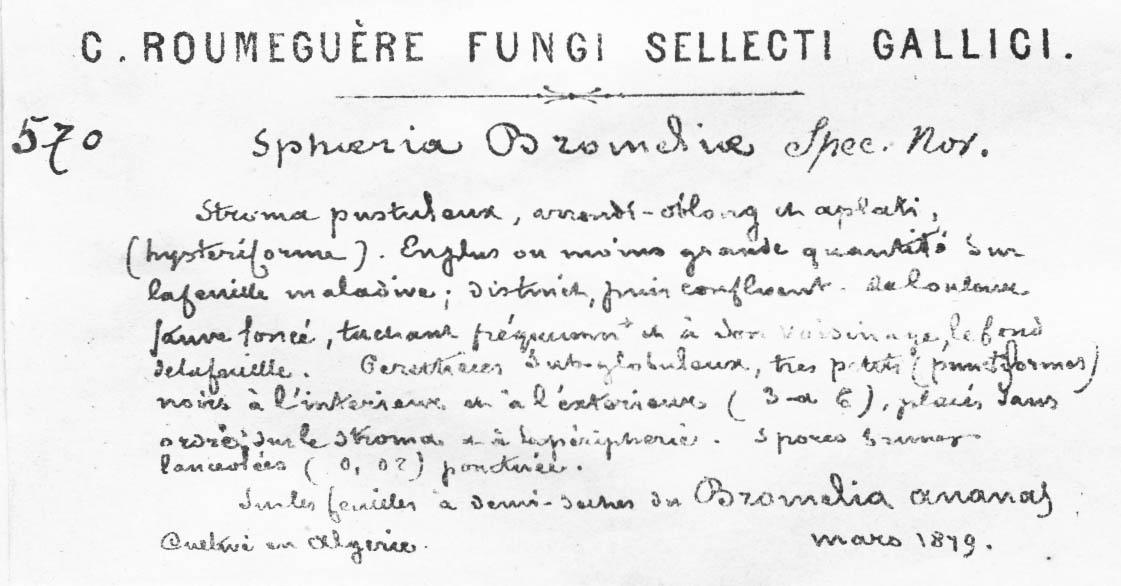 C. ROUMEGUÈRE FUNGI SELLECTI GALLICI.
570 Sphæria Bromeliæ Spec. Nov.
Stroma pustuleux, arrondi-oblong et aplati,
(hysteriforme). En plus ou moins grande quantité sur
la feuille maladive; distinct, puis confluent. de couleur
fauve foncé, tachant fréquemmt et à son voisinage, le fond
de la feuille. Perithèces subglobuleux, très petits (punctiformes)
noirs à l'interieur et à l'éxterieur (3-à 6), placés sans
ordre, sur le stroma et à la périphérie. Spores brunes
lanceolées (0,02) ponctuée.
Sur les feuilles à demi-sèches du Bromelia ananas
Cultivé en Algerie. mars 1879.